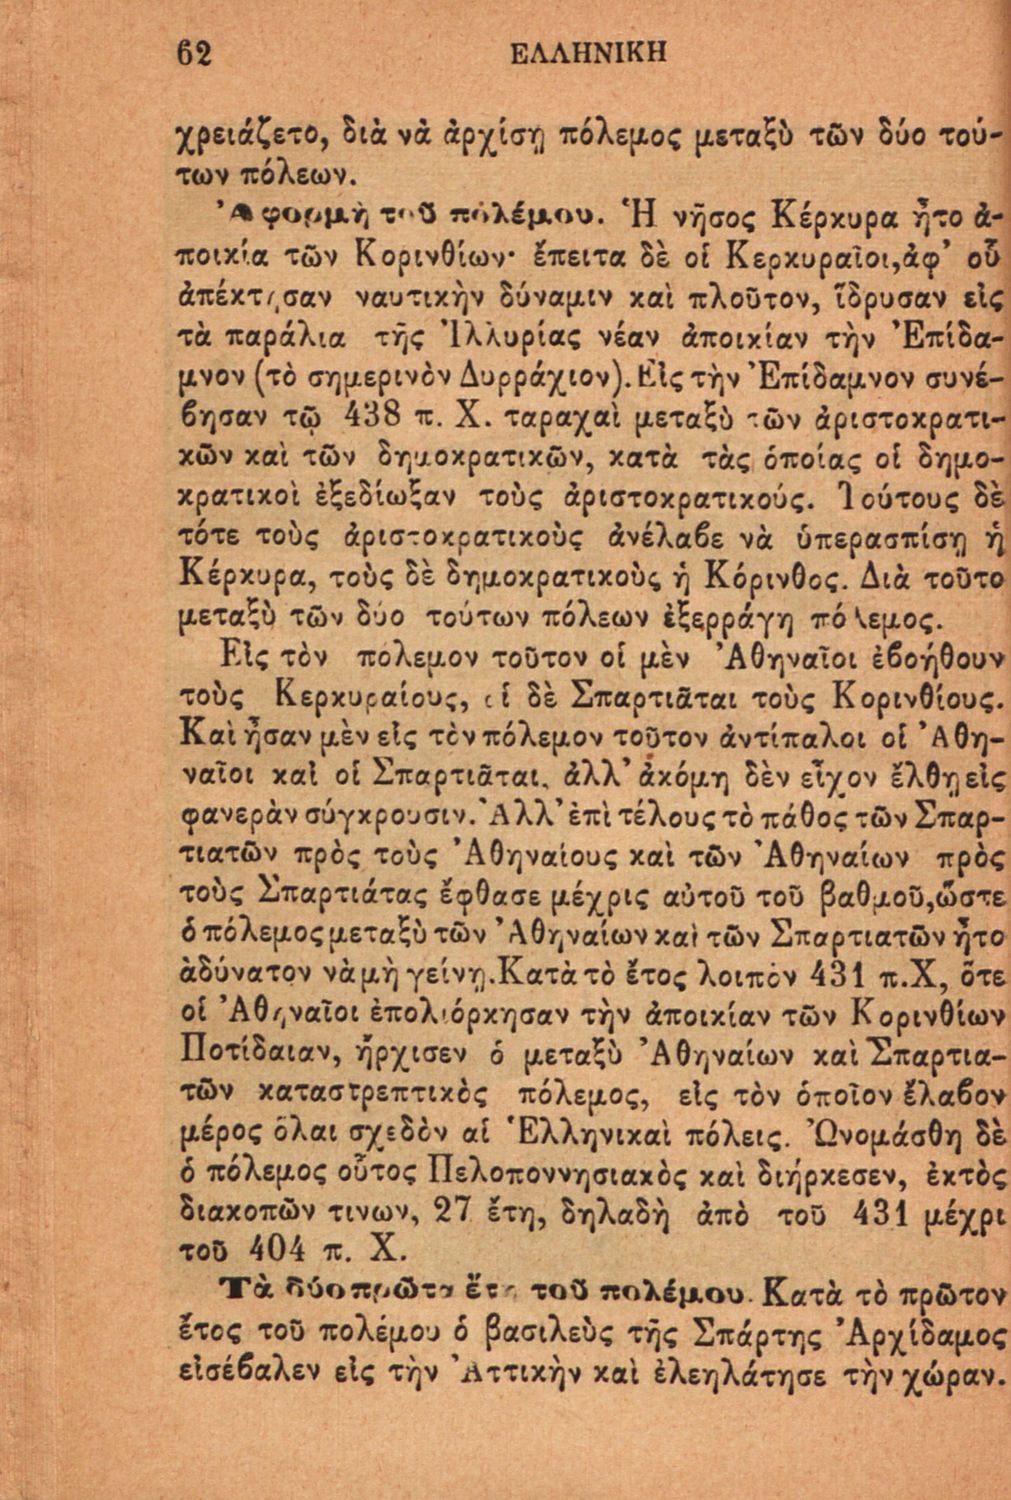 62 ΕΛΛΗΝΙΚΗ
χρειάζετο, διὰ νὰ ἀρχίσῃ πόλεμος μεταξὺ τῶν δύο τού-
των πόλεων.
Ἀφορμὴ τοῦ πολέμου. Ἡ νῆσος Κέρκυρα ἦτο ἀ-
ποικία τῶν Κορινθίων· ἔπειτα δὲ οἱ Κερκυραῖοι, ἀφ' οὗ
ἀπέκτησαν ναυτικὴν δύναμιν καὶ πλοῦτον, ἵδρυσαν εἰς
τὰ παράλια τῆς Ἰλλυρίας νέαν ἀποικίαν τὴν Ἐπίδα-
μνον (τὸ σημερινὸν Δυρράχιον). Εἰς τὴν Ἐπίδαμνον συνέ-
βησαν τῷ 438 π. Χ. ταραχαὶ μεταξὺ τῶν ἀριστοκρατι-
κῶν καὶ τῶν δημοκρατικῶν, κατὰ τὰς ὁποίας οἱ δημο-
κρατικοὶ ἐξεδίωξαν τοὺς ἀριστοκρατικούς. Τούτους δὲ
τότε τοὺς ἀριστοκρατικοὺς ἀνέλαβε νὰ ὑπερασπίσῃ ἡ
Κέρκυρα, τοὺς δὲ δημοκρατικοὺς ἡ Κόρινθος. Διὰ τοῦτο
μεταξὺ τῶν δύο τούτων πόλεων ἐξερράγη πόλεμος.
Εἰς τὸν πόλεμον τοῦτον οἱ μὲν Ἀθηναῖοι ἐβοήθουν
τοὺς Κερκυραίους, οἱ δὲ Σπαρτιᾶται τοὺς Κορινθίους.
Καὶ ἦσαν μὲν εἰς τὸν πόλεμον τοῦτον ἀντίπαλοι οἱ Ἀθη-
ναῖοι καὶ οἱ Σπαρτιᾶται, ἀλλ' ἀκόμη δὲν εἶχον ἔλθῃ εἰς
φανερὰν σύγκρουσιν. Ἀλλ' ἐπὶ τέλους τὸ πάθος τῶν Σπαρ-
τιατῶν πρὸς τοὺς Ἀθηναίους καὶ τῶν Ἀθηναίων πρὸς
τοὺς Σπαρτιάτας ἔφθασε μέχρις αὐτοῦ τοῦ βαθμοῦ, ὥστε
ὁ πόλεμος μεταξὺ τῶν Ἀθηναίων καὶ τῶν Σπαρτιατῶν ἦτο
ἀδύνατον νὰ μὴ γείνῃ. Κατὰ τὸ ἔτος λοιπὸν 431 π.Χ, ὅτε
οἱ Ἀθηναῖοι ἐπολιόρκησαν τὴν ἀποικίαν τῶν Κορινθίων
Ποτίδαιαν, ἤρχισεν ὁ μεταξὺ Ἀθηναίων καὶ Σπαρτια-
τῶν καταστρεπτικὸς πόλεμος, εἰς τὸν ὁποῖον ἔλαβον
μέρος ὅλαι σχεδὸν αἱ Ἑλληνικαὶ πόλεις. Ὠνομάσθη δὲ
ὁ πόλεμος οὗτος Πελοποννησιακὸς καὶ διήρκεσεν, ἐκτὸς
διακοπῶν τινων, 27 ἔτη, δηλαδὴ ἀπὸ τοῦ 431 μέχρι
τοῦ 404 π. Χ.
Τὰ δύο πρῶτα ἔτη τοῦ πολέμου. Κατὰ τὸ πρῶτον
ἔτος τοῦ πολέμου ὁ βασιλεὺς τῆς Σπάρτης Ἀρχίδαμος
εἰσέβαλεν εἰς τὴν Ἀττικὴν καὶ ἐλεηλάτησε τὴν χώραν.